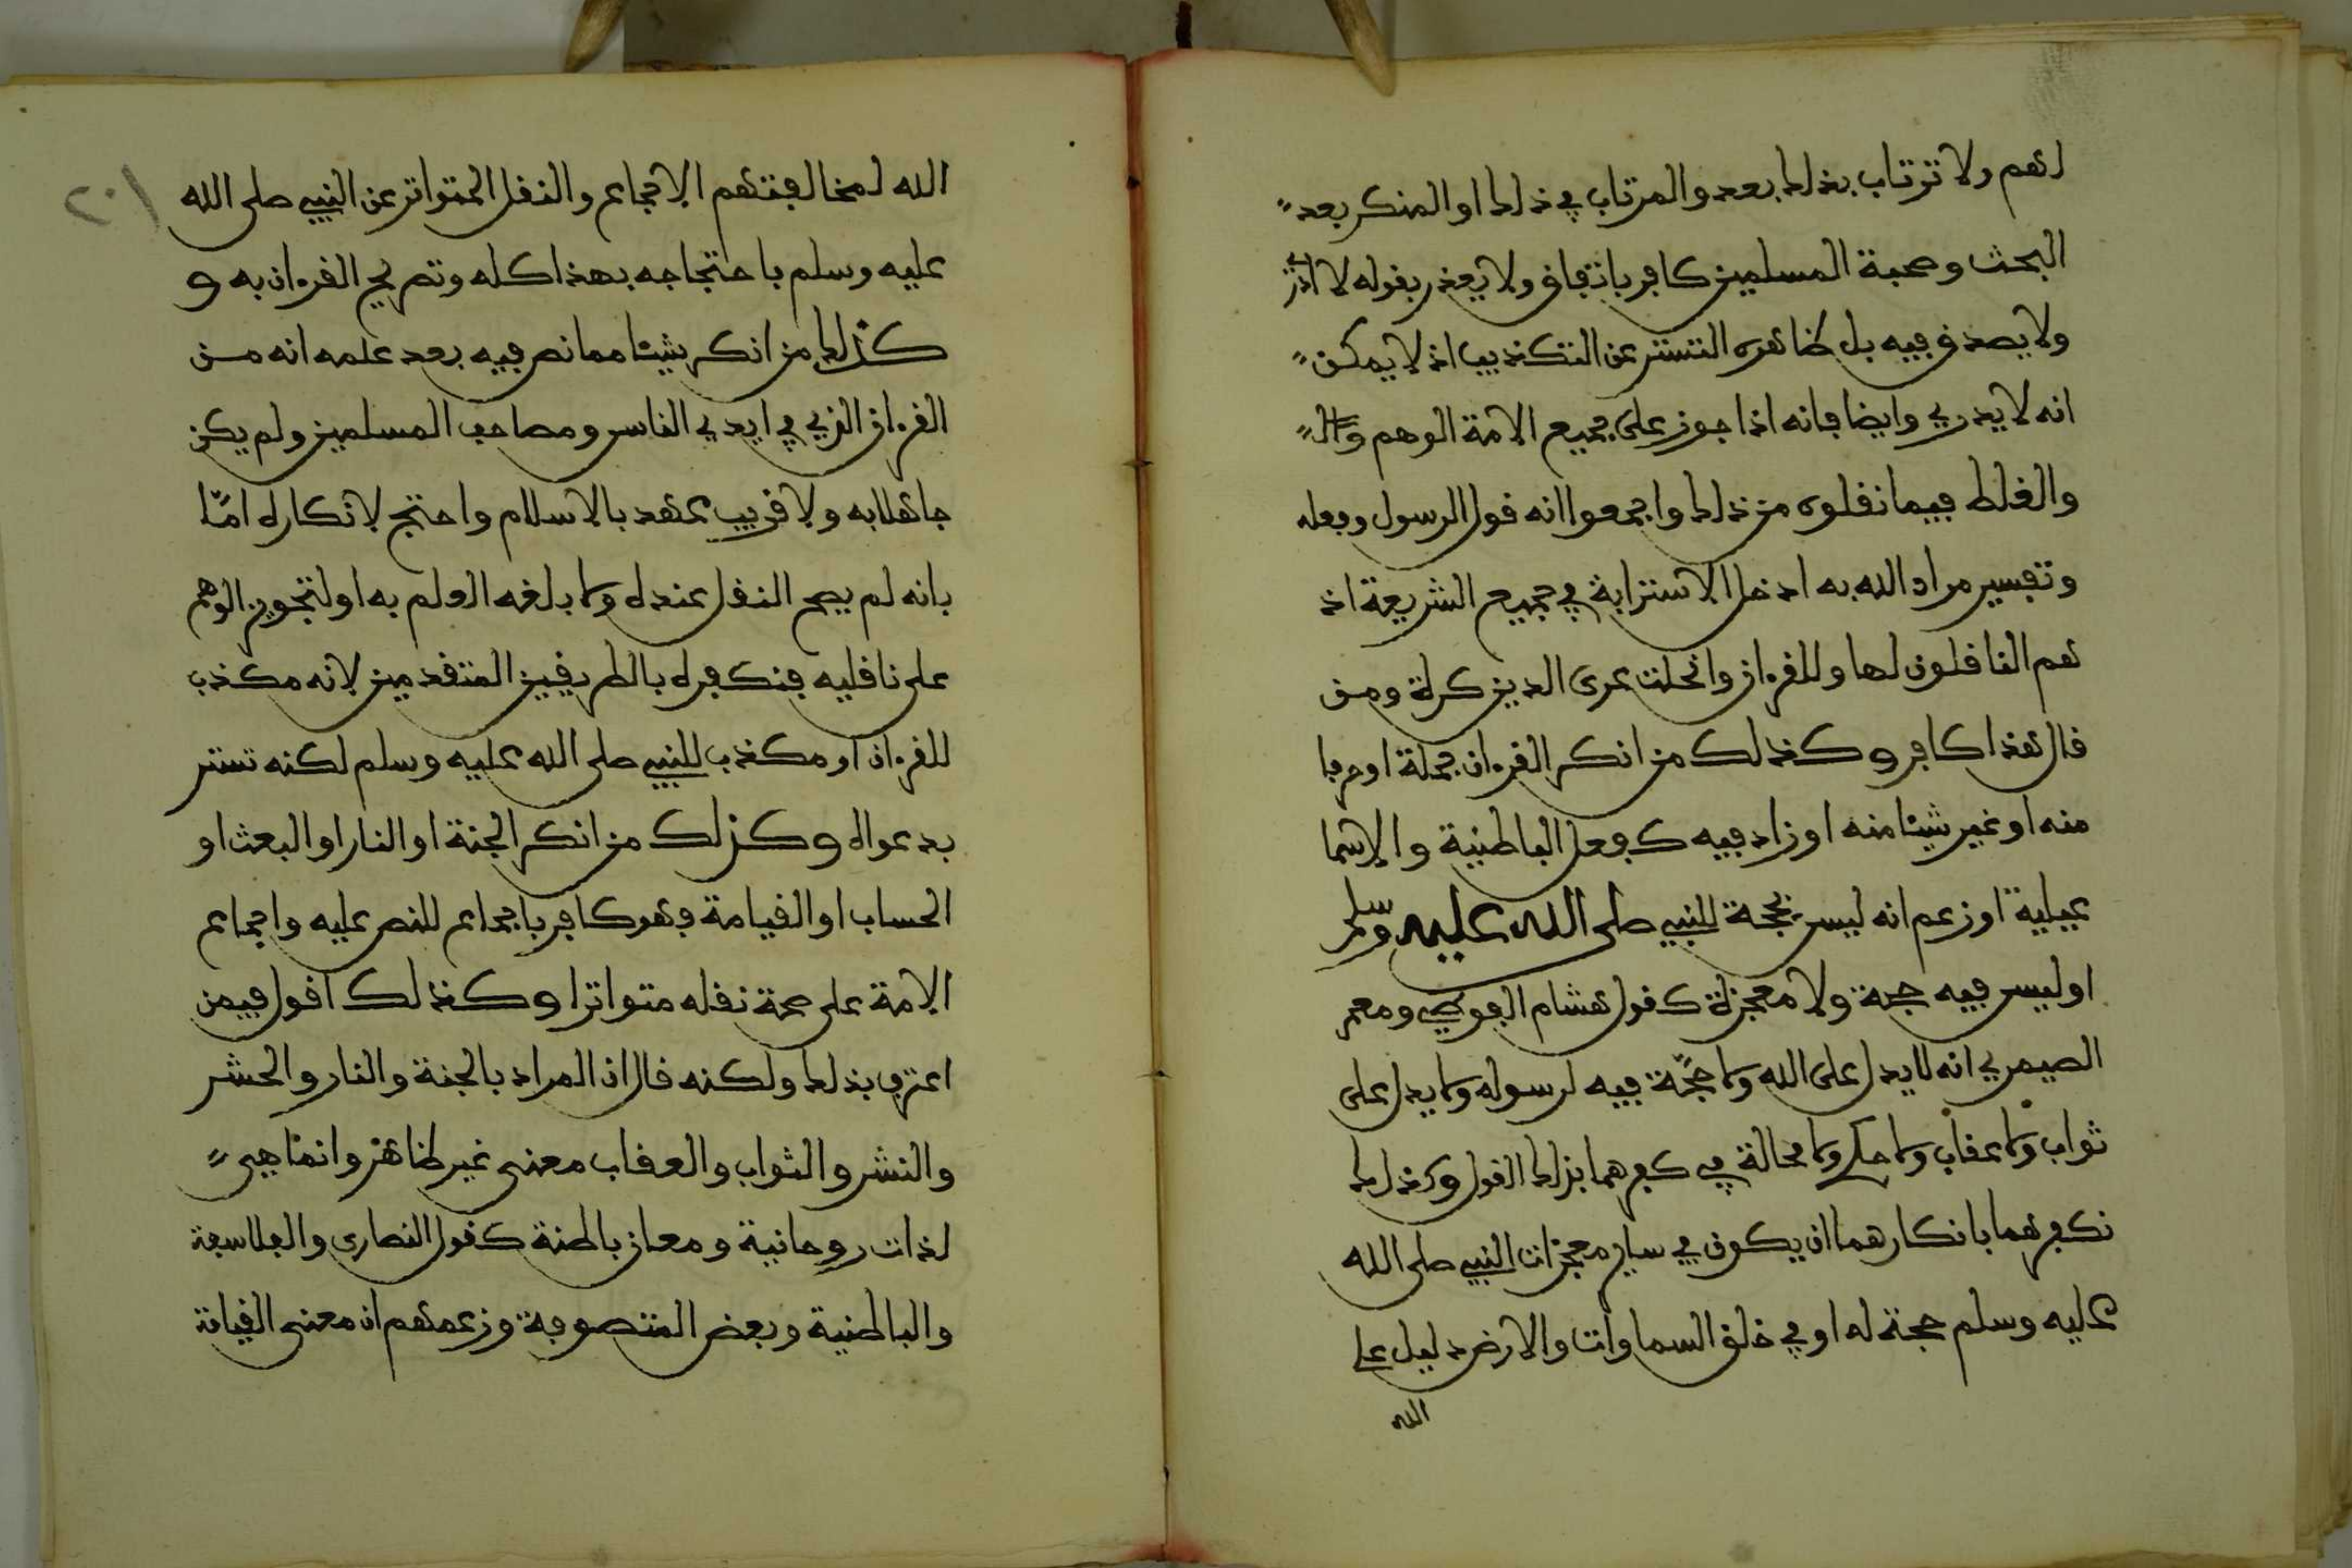 لهم ولا ترتاب بذلك بعد والمرتاب في ذلك او المنكر بعد
البحث وصحبة المسلمين كافر باتفاق ولا يعذر بقوله لا ادري
ولا يصدق فيه بل ظاهره التستر عن التكذيب اذ لا يمكن
انه لا يدري وايضا فانه اذا جوز على جميع الامة الوهم
والغلط فيما نقلوه من ذلك واجمعوا انه قول الرسول وفعله
وتفسير مراد الله به ادخل الاسترابة في جميع الشريعة اذ
هم الناقلون لها وللقرءان وانحلت عرى الدين كرة ومن
قال هذا كافر وكذلك من انكر القرءان جملة او حرفا
منه او غير شيئا منه او زاد فيه كفعل الباطنية والاسما
عيلية او زعم انه ليس بحجة للنبي صلى الله عليه وسلم
او ليس فيه حجة ولا معجزة كقول هشام الفوطي ومعمر
الصيمري انه لا يدل على الله ولا حجة فيه لرسوله ولا يدل على
ثواب ولا عقاب ولا حكم ولا محالة في كفرهما بذلك القول وكذلك
نكفرهما بانكارهما ان يكون في ساير معجزات النبي صلى الله
عليه وسلم حجة له او في خلق السماوات والارض دليل على
الله
٢٠١
الله لمخالفتهم الاجماع والنقل المتواتر عن النبي صلى الله
عليه وسلم باحتجاجه بهذا كله وتصريح القرءان به و
كذلك من انكر شيئا مما نص فيه بعد علمه انه من
القرءان الذي في ايدي الناس ومصاحف المسلمين ولم يكن
جاهلا به ولا قريب عهد بالاسلام واحتج لانكاره اما
بانه لم يصح النقل عنده ولا بلغه العلم به او لتجويز الوهم
على ناقليه فنكفره بالطريقين المتقدمين لانه مكذب
للقرءان او مكذب للنبي صلى الله عليه وسلم لكنه تستر
بدعواه وكذلك من انكر الجنة او النار او البعث او
الحساب او القيامة فهو كافر باجماع للنص عليه واجماع
الامة على صحة نقله متواترا وكذلك اقول فيمن
اعترف بذلك ولكنه قال ان المراد بالجنة والنار والحشر
والنشر والثواب والعقاب معنى غير ظاهره وانما هي
لذات روحانية ومعان باطنة كقول النصارى والفلاسفة
والباطنية وبعض المتصوفة وزعمهم ان معنى القيامة